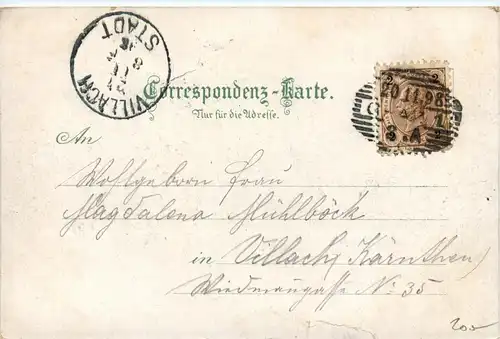 VILLACH
STADT
Correspondenz-Karte.
Nur für die Adresse.
20 11 98
An
Wohlgeborn Frau
Magdalena Mühlböck
in Villach, Kärnthen
No 35
200